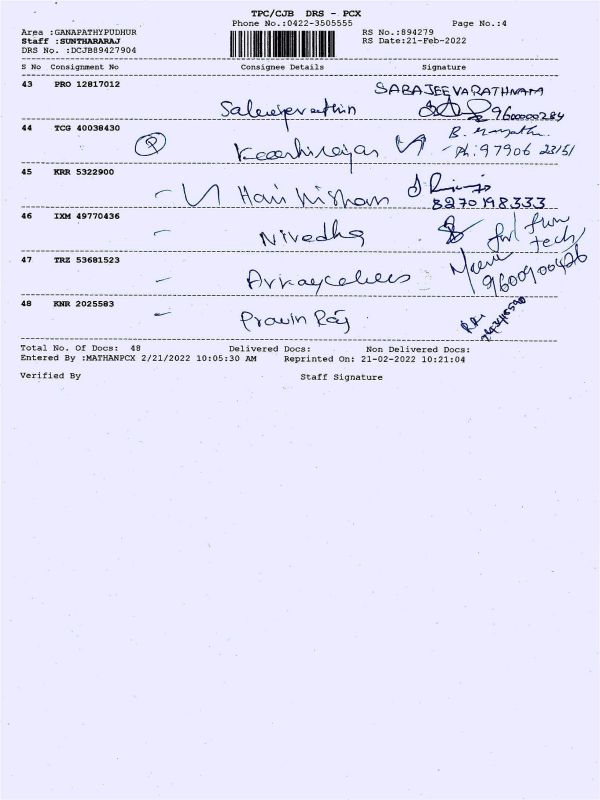 TPC/CJB DRS - PCX
Phone No.:0422-3505555
Page No.:4
Area :GANAPATHYPUDHUR
RS No.:894279
Staff :SUNTHARARAJ
RS Date:21-Feb-2022
DRS No. :DCJB89427904
S No Consignment No Consignee Details Signature
43 PRO 12817012
SABAJEEVARATHNAM
9600000284
44 TCG 40038430
P
B.
Ph: 97906 23151
45 KRR 5322900
Hari
8270198333
46 IXM 49770436
Nivedha
tech
47 TRZ 53681523
9600900426
48 KNR 2025583
Pravin Raj
Total No. Of Docs: 48 Delivered Docs: Non Delivered Docs:
Entered By :MATHANPCX 2/21/2022 10:05:30 AM Reprinted On: 21-02-2022 10:21:04
Verified By Staff Signature